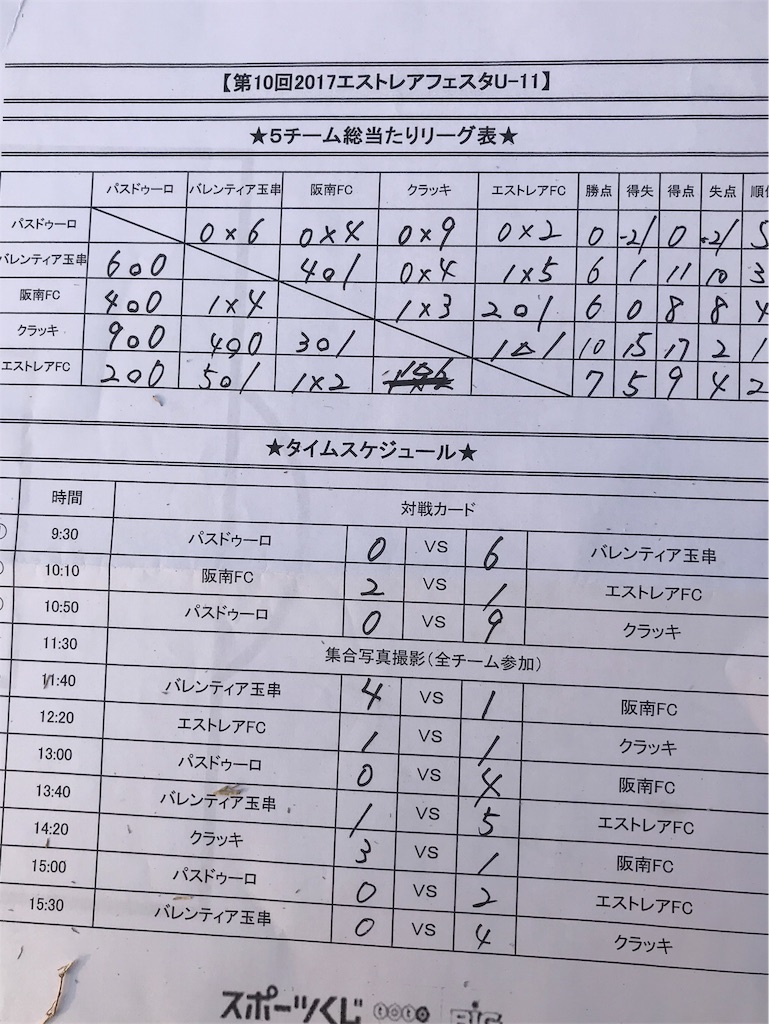 【第10回2017エストレアフェスタU-11】
★5チーム総当たりリーグ表★
パスドゥーロ バレンティア玉串 阪南FC クラッキ エストレアFC 勝点 得失 得点 失点 順位
パスドゥーロ 0×6 0×4 0×9 0×2 0 -21 0 -21 5
バレンティア玉串 6○0 4○1 0×4 1×5 6 1 11 10 3
阪南FC 4○0 1×4 1×3 2○1 6 0 8 8 4
クラッキ 9○0 4○0 3○1 1△1 10 15 17 2 1
エストレアFC 2○0 5○1 1×2 7 5 9 4 2
★タイムスケジュール★
時間 対戦カード
9:30 パスドゥーロ 0 VS 6 バレンティア玉串
10:10 阪南FC 2 VS 1 エストレアFC
10:50 パスドゥーロ 0 VS 9 クラッキ
11:30 集合写真撮影(全チーム参加)
11:40 バレンティア玉串 4 VS 1 阪南FC
12:20 エストレアFC 1 VS 1 クラッキ
13:00 パスドゥーロ 0 VS 4 阪南FC
13:40 バレンティア玉串 1 VS 5 エストレアFC
14:20 クラッキ 3 VS 1 阪南FC
15:00 パスドゥーロ 0 VS 2 エストレアFC
15:30 バレンティア玉串 0 VS 4 クラッキ
スポーツくじ toto BIG